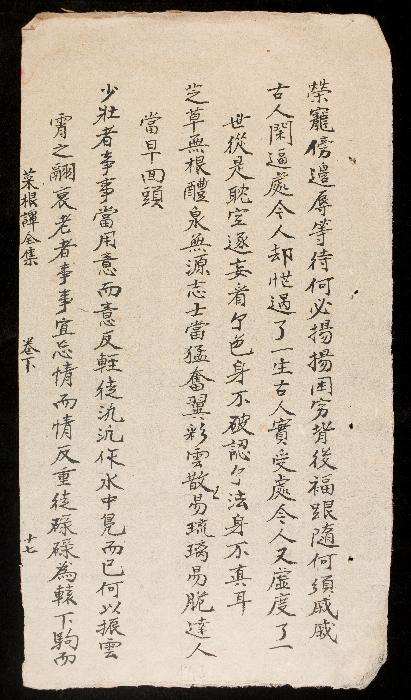 榮寵傍邊辱等待何必揚揚困窮背後福跟隨何須戚戚
古人閑適處今人却忙過了一生古人實受處今人又虛度了一
世從是耽空逐妄看个色身不破認个法身不真耳
芝草無根醴泉無源志士當猛奮翼彩雲散易琉璃易脆達人
當早回頭
少壯者事事當用意而意反輕徒汎汎作水中鳧而已何以振雲
霄之翮衰老者事事宜忘情而情反重徒碌碌為轅下駒而
菜根譚全集 卷下 十七